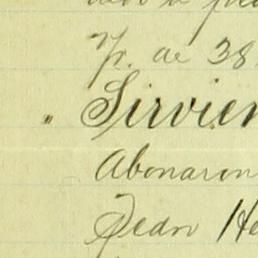 Yr. de 38
" Sirvien
Abonaron
Jean He